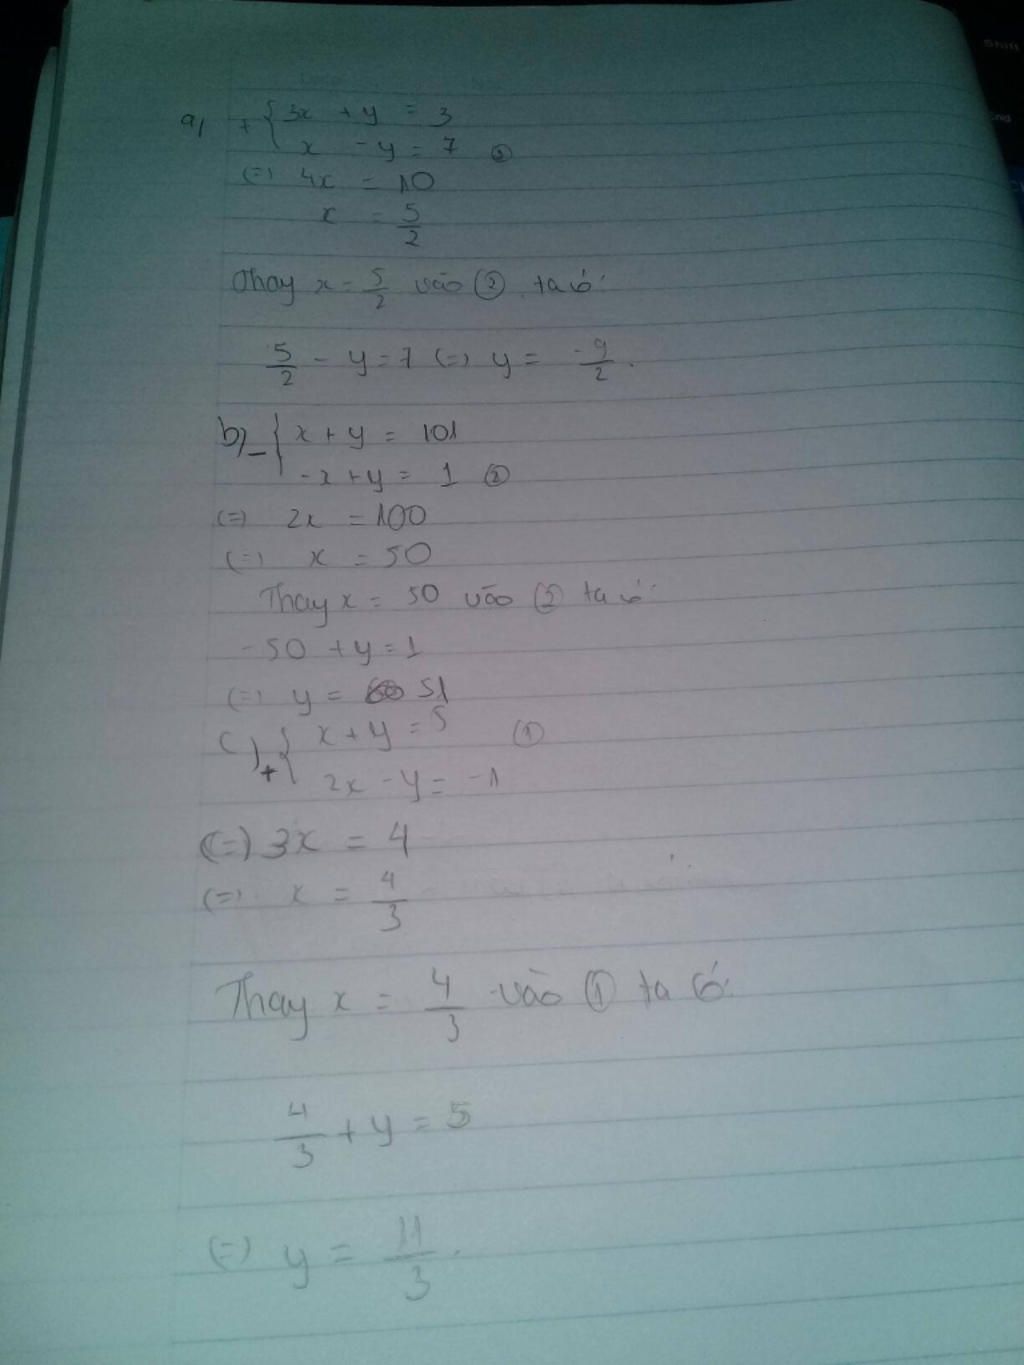 a) + { 3x + y = 3
x - y = 7 ②
(=) 4x = 10
x = 5/2
Thay x = 5/2 vào ② ta có:
5/2 - y = 7 (=) y = -9/2.
b) - { x + y = 101
-x + y = 1 ②
(=) 2x = 100
(=) x = 50
Thay x = 50 vào ② ta có:
-50 + y = 1
(=) y = 51
c) + { x + y = 5 ①
2x - y = -1
(=) 3x = 4
(=) x = 4/3
Thay x = 4/3 vào ① ta có:
4/3 + y = 5
(=) y = 11/3.